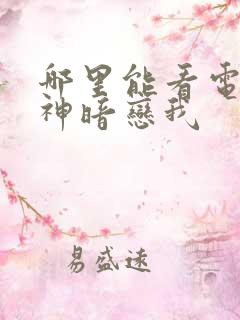 哪里能看電
神暗戀我
易盛遠